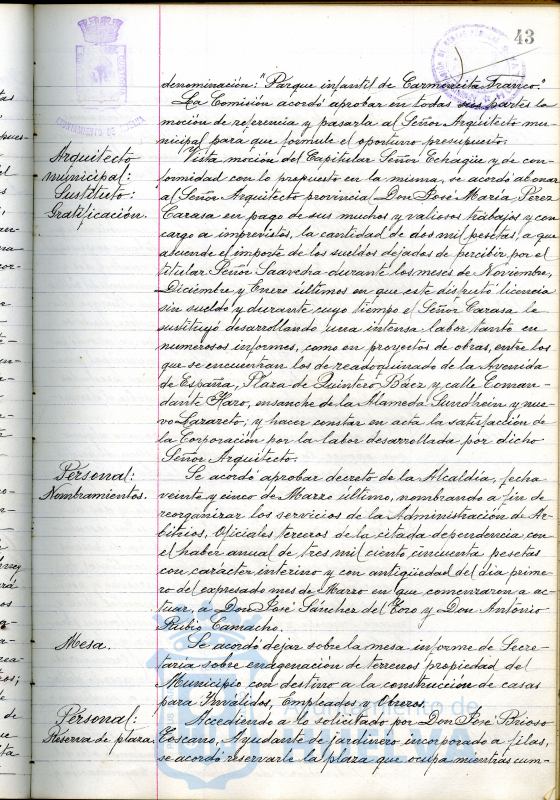 43
denominación: "Parque infantil de Carmencita Franco."
La Comisión acordó aprobar en todas sus partes la
moción de referencia y pasarla al Señor Arquitecto mu-
nicipal para que formule el oportuno presupuesto.
Arquitecto
municipal:
Sustituto:
Gratificación.
Vista moción del Capitular Señor Echagüe y de con-
formidad con lo propuesto en la misma, se acordó abonar
al Señor Arquitecto provincia Don José María Pérez
Carasa en pago de sus muchos y valiosos trabajos y con
cargo a imprevistos, la cantidad de dos mil pesetas, a que
asciende el importe de los sueldos dejados de percibir por el
titular Señor Saavedra durante los meses de Noviembre,
Diciembre y Enero últimos en que este disfrutó licencia
sin sueldo y durante cuyo tiempo el Señor Carasa le
sustituyó desarrollando una intensa labor tanto en
numerosos informes, como en proyectos de obras, entre los
que se encuentran los de readoquinado de la Avenida
de España, Plaza de Quintero Báez y calle Coman-
dante Haro, ensanche de la Alameda Sundhein y nue-
vo Lazareto; y hacer constar en acta la satisfacción de
la Corporación por la labor desarrollada por dicho
Señor Arquitecto.
Personal:
Nombramientos.
Se acordó aprobar decreto de la Alcaldía, fecha
veinte y cinco de Marzo último, nombrando a fin de
reorganizar los servicios de la Administración de Ar-
bitrios, Oficiales terceros de la citada dependencia con
el haber anual de tres mil ciento cincuenta pesetas
con carácter interino y con antigüedad del dia prime-
ro del expresado mes de Marzo en que comenzaron a ac-
tuar, á Don José Sánchez del Toro y Don Antonio
Rubio Camacho.
Mesa.
Se acordó dejar sobre la mesa informe de Secre-
taria sobre enagenación de terrenos propiedad del
Municipio con destino a la construcción de casas
para Inválidos, Empleados y Obreros.
Personal:
Reserva de plaza.
Accediendo a lo solicitado por Don José Brioso
Toscano, Ayudante de jardinero incorporado a filas,
se acordó reservarle la plaza que ocupa mientras cum-